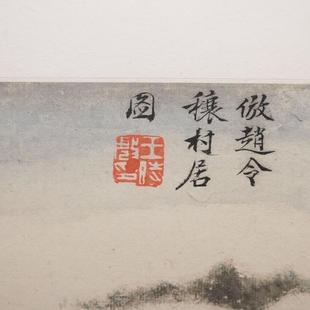 倣趙令
穰村居
圖
王時敏印